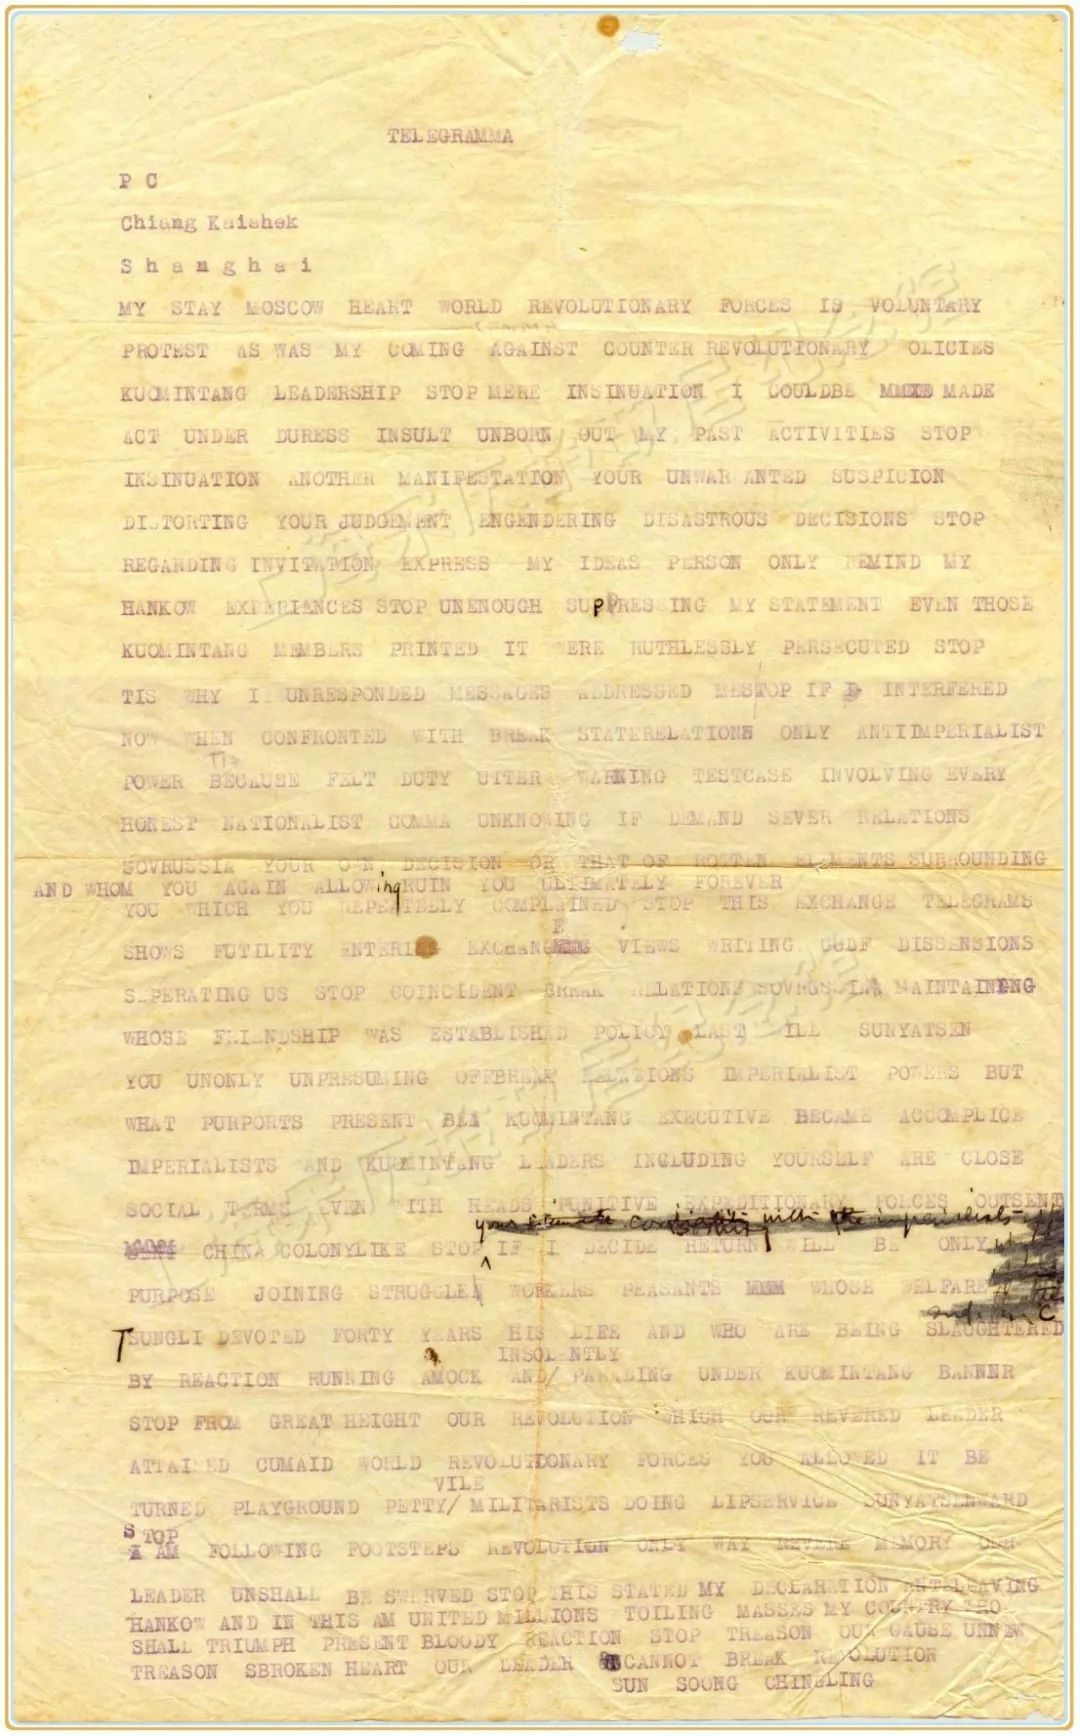 TELEGRAMMA
P C
Chiang Kaishek
Shanghai
MY STAY MOSCOW HEART WORLD REVOLUTIONARY FORCES IS VOLUNTARY
PROTEST AS WAS MY COMING AGAINST COUNTER REVOLUTIONARY OLICIES
KUOMINTANG LEADERSHIP STOP MERE INSINUATION I COULDBE MADE
ACT UNDER DURESS INSULT UNBORN OUT MY PAST ACTIVITIES STOP
INSINUATION ANOTHER MANIFESTATION YOUR UNWAR ANTED SUSPICION
DISTORTING YOUR JUDGEMENT ENGENDERING DISASTROUS DECISIONS STOP
REGARDING INVITATION EXPRESS MY IDEAS PERSON ONLY REMIND MY
HANKOW EXPERIENCES STOP UNENOUGH SUPPRESSING MY STATEMENT EVEN THOSE
KUOMINTANG MEMBERS PRINTED IT WERE RUTHLESSLY PERSECUTED STOP
TIS WHY I UNRESPONDED MESSAGES ADDRESSED MESTOP IF I INTERFERED
NOW WHEN CONFRONTED WITH BREAK STATERELATIONS ONLY ANTIIMPERIALIST
POWER TIS BECAUSE FELT DUTY UTTER WARNING TESTCASE INVOLVING EVERY
HONEST NATIONALIST COMMA UNKNOWING IF DEMAND SEVER RELATIONS
SOVRUSSIA YOUR OWN DECISION OR THAT OF ROTTEN ELEMENTS SURROUNDING
AND WHOM YOU AGAIN ALLOWing RUIN YOU ULTIMATELY FOREVER
YOU WHICH YOU REPEATEDLY COMPLAINED STOP THIS EXCHANGE TELEGRAMS
SHOWS FUTILITY ENTERING EXCHANGE VIEWS WRITING CUDF DISSENSIONS
SEPERATING US STOP COINCIDENT BREAK RELATIONS SOVRUSSIA MAINTAINING
WHOSE FRIENDSHIP WAS ESTABLISHED POLICY LAST ILL SUNYATSEN
YOU UNONLY UNPRESUMING OFFBREAK RELATIONS IMPERIALIST POWERS BUT
WHAT PURPORTS PRESENT BEA KUOMINTANG EXECUTIVE BECAME ACCOMPLICE
IMPERIALISTS AND KUOMINTANG LEADERS INCLUDING YOURSELF ARE CLOSE
SOCIAL TERMS EVEN ITH HEADS PUNITIVE EXPEDITIONARY FORCES OUTSENT
CHINA COLONYLIKE STOP IF I DECIDE RETURN WILL BE ONLY
PURPOSE JOINING STRUGGLE WORKERS PEASANTS WHOSE WELFARE
TSUNGLI DEVOTED FORTY YEARS HIS LIFE AND WHO ARE BEING SLAUGHTERED
BY REACTION RUNNING AMOCK AND/ INSOLENTLY PARADING UNDER KUOMINTANG BANNER
STOP FROM GREAT HEIGHT OUR REVOLUTION WHICH OUR REVERED LEADER
ATTAINED CUMAID WORLD REVOLUTIONARY FORCES YOU ALLOWED IT BE
TURNED PLAYGROUND PETTY/ VILE MILITARISTS DOING LIPSERVICE SUNYATSENWARD
STOP
I AM FOLLOWING FOOTSTEPS REVOLUTION ONLY WAY REVERE MEMORY OUR
LEADER UNSHALL BE SWERVED STOP THIS STATED MY DECLARATION ANTELEAVING
HANKOW AND IN THIS AM UNITED MILLIONS TOILING MASSES MY COUNTRY THO
SHALL TRIUMPH PRESENT BLOODY REACTION STOP TREASON OUR CAUSE
TREASON SBROKEN HEART OUR LEADER CANNOT BREAK REVOLUTION
SUN SOONG CHINGLING